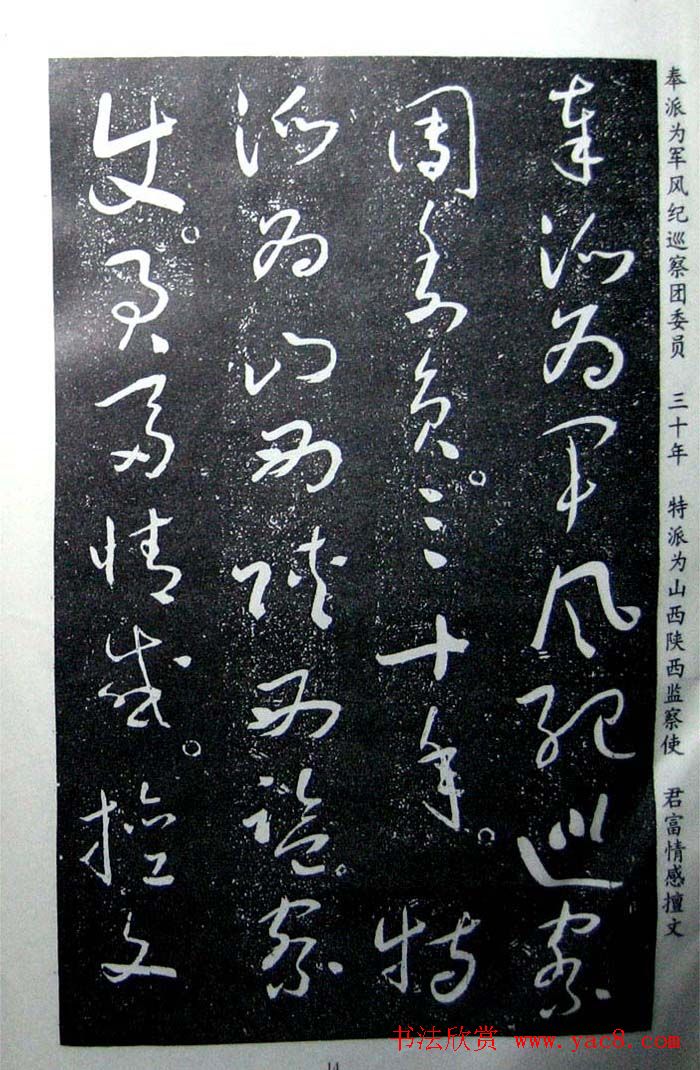 奉派为军风纪巡察团委员 三十年 特派为山西陕西监察使 君富情感擅文
奉派為軍風紀巡察
團委員。三十年。特
派為山西陝西監察
使。君富情感。擅文
书法欣赏 www.yac8.com
14